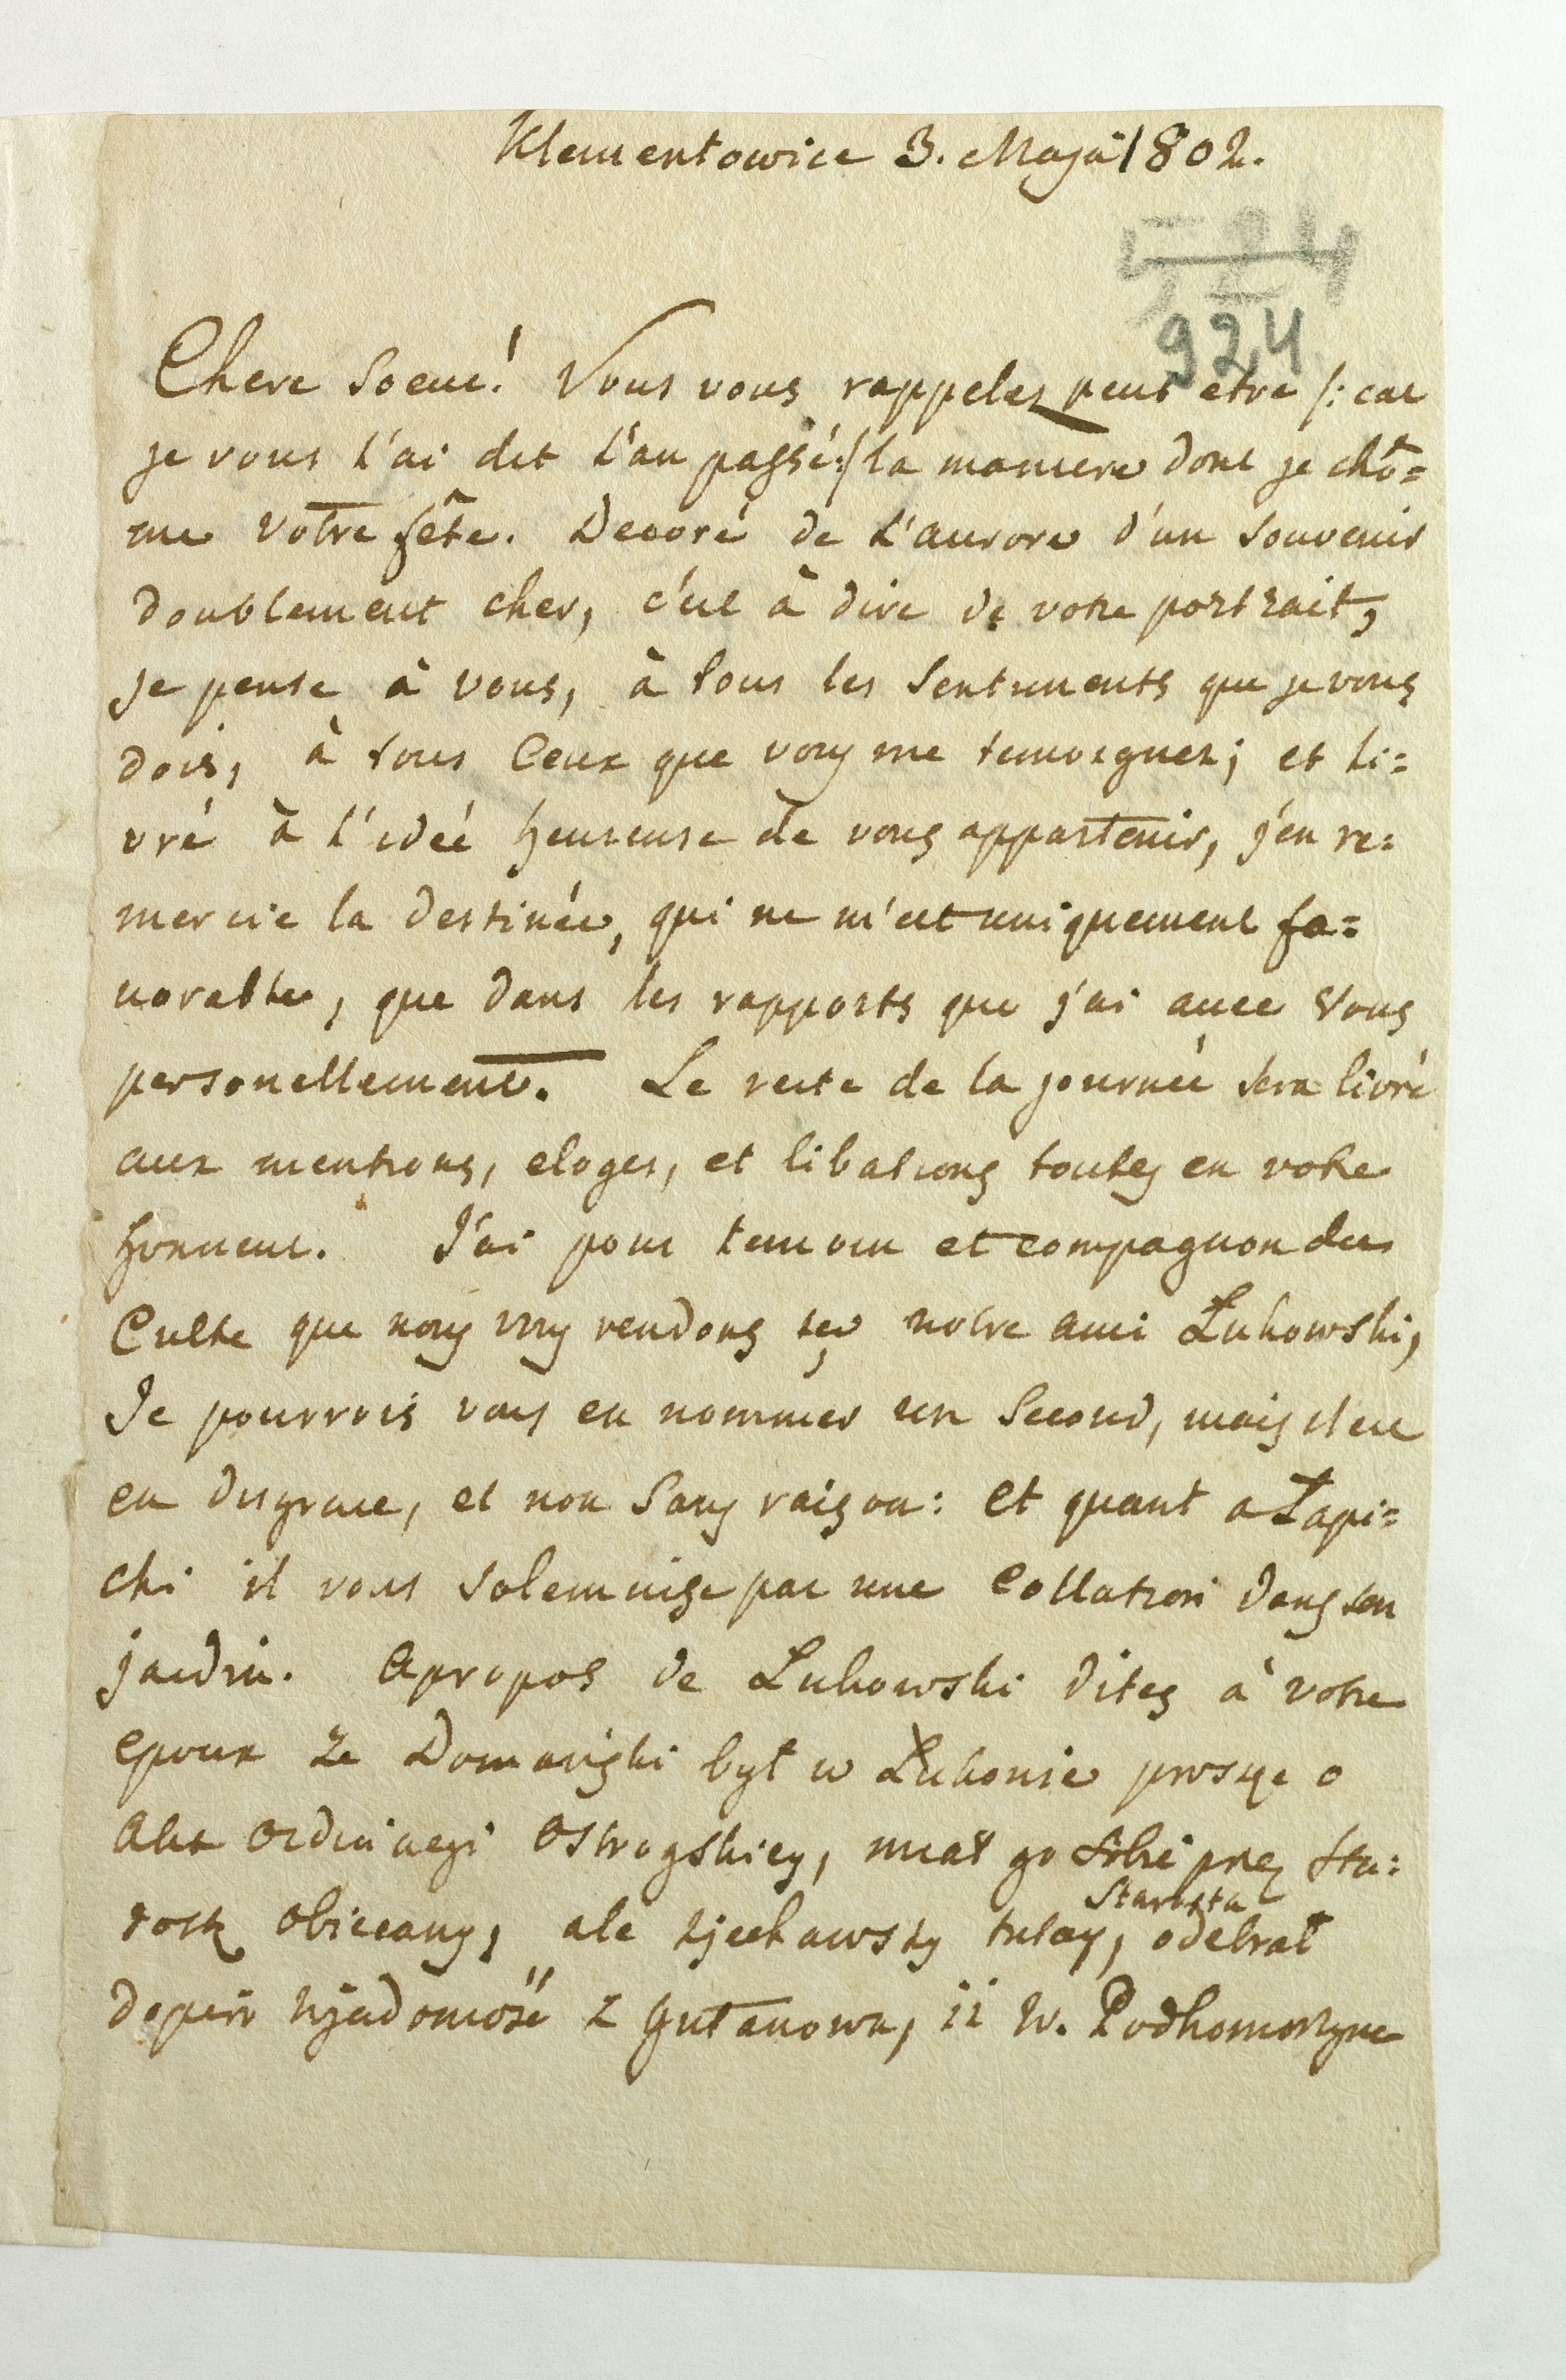 Klementowice 3. Maja 1802.
924
Chere Soeur! Vous vous rappelez peut etre /: car
je vous l'ai dit l'an passé :/ la maniere dont je chô=
me votre fête. Decoré de l'aurore d'un souvenir
doublement cher, c'est à dire de votre portrait,
je pense à vous, à tous les sentiments que je vous
dois, à tous ceux que vous me temoignez; et li=
vré à l'ideé heureuse de vous appartenir, j'en re=
mercie la destinée, qui ne m'est uniquement fa=
vorable, que dans les rapports que j'ai avec vous
personellement. Le reste de la journeé sera livré
aux mentions, eloges, et libations toutes en votre
honneur. J'ai pour temoin et compagnon du
Culte que nous vous rendons notre ami Łukowski,
Je pourrois vous en nommer un second, mais il est
en disgrace, et non sans raison: et quant a Łapi=
cki il vous solemnise par une Collation dans son
jardin. Apropos de Łukowski dites à votre
epoux że Domański był w Łukowie prosząc o
Akt Ordinacyi Ostrogskiey, miał go sobie przez Sta=
rostę obiecany, ale zjechawszy tutay, Starosta odebrał
dopiero wjadomość z Gutanowa, iż W. Podkomorzyna